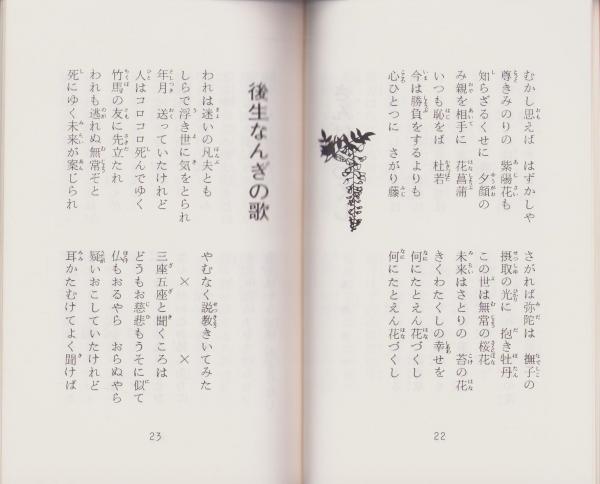 むかし思えば　はずかしや
尊きみのりの　紫陽花も
知らざるくせに　夕顔の
み親を相手に　花菖蒲
いつも恥をば　杜若
今は勝負をするよりも
心ひとつに　さがり藤
さがれば弥陀は　撫子の
摂取の光に　抱き牡丹
この世は無常の桜花
未来はさとりの　苔の花
きくわたくしの幸せを
何にたとえん花づくし
何にたとえん花づくし
22
後生なんぎの歌
われは迷いの凡夫とも
しらで浮き世に気をとられ
年月　送っていたけれど
人はコロコロ死んでゆく
竹馬の友に先立たれ
われも逃れぬ無常ぞと
死にゆく未来が案じられ
やむなく説教きいてみた
×　　×
三座五座と聞くころは
どうもお慈悲もうそに似て
仏もおるやら　おらぬやら
疑いおこしていたけれど
耳かたむけてよく聞けば
23